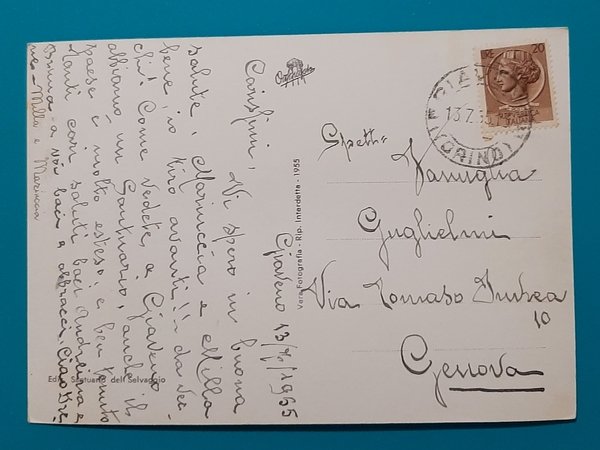 Giaveno 13/7/1955
Carissimi,
Vi spero in buona
salute, Mariuccia e Milla
bene, io tiro avanti!! da vec-
chi! Come vedete a Giaveno
abbiamo un Santuario, anche il
paese è molto esteso! e ben tenuto
tanti cari saluti baci Andreina e
Bruna - a voi baci e abbracci, Ciao
Milla e Mariuccia
Ediz. Santuario dell Selvaggio
Vera Fotografia - Rip. Interdetta - 1955
20
GIAVENO
13.7.55
(TORINO)
Spett.
Famiglia
Guglielmi
Via Tomaso Invrea
10
Genova